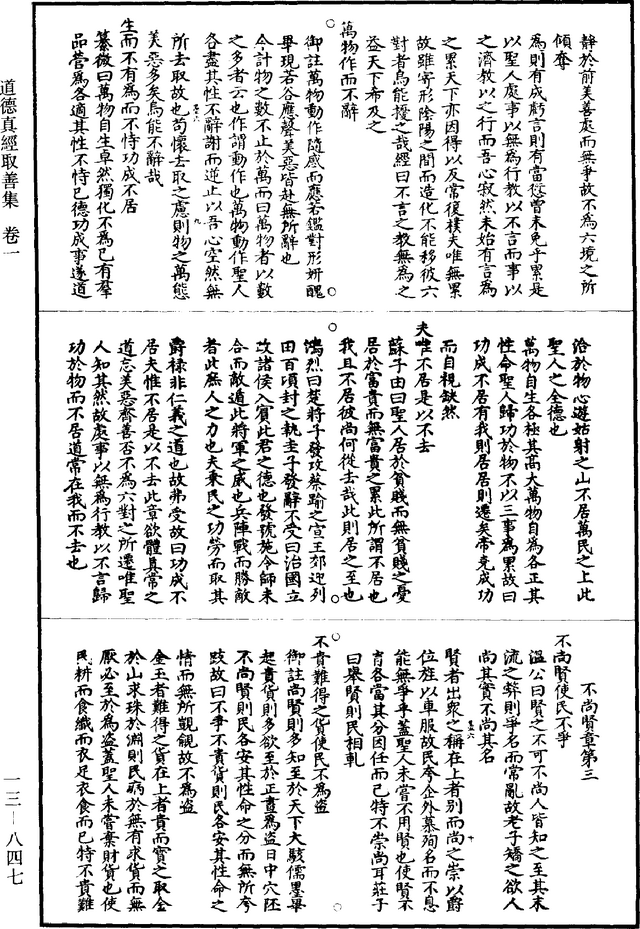 靜於前美善處而無爭故不為六境之所
傾奪
為則有成虧言則有當愆曾未免乎累是
以聖人處事以無為行教以不言而事以
之濟教以之行而吾心寂然未始有言為
之累天下亦因得以反常復樸夫唯無累
故雖寄形陰陽之間而造化不能移彼六
對者烏能擾之哉經曰不言之教無為之
益天下希及之
萬物作而不辭
御註萬物動作隨感而應若鑑對形妍醜
畢現若谷應聲美惡皆赴無所辭也
今計物之數不止於萬而曰萬物者以數
之多者云也作謂動作也萬物動作聖人
各盡其性不辭謝而逆止以吾心空然無
所去取故也苟懷去取之慮則物之萬態
美惡多矣烏能不辭哉
生而不有為而不恃功成不居
纂微曰萬物自生卓然獨化不為已有羣
品營為各適其性不恃已德功成事遂道
洽於物心遊姑射之山不居萬民之上此
聖人之全德也
萬物自生各極其高大萬物自為各正其
性命聖人歸功於物不以三事為累故曰
功成不居有我則居居則遷矣帝堯成功
而自視缺然
夫唯不居是以不去
蘇子由曰聖人居於貧賤而無貧賤之憂
居於富貴而無富貴之累此所謂不居也
我且不居彼尚何從去哉此則居之至也
鴻烈曰楚將子發攻蔡踰之宣王郊迎列
田百頃封之執圭子發辭不受曰治國立
政諸侯入賓此君之德也發號施令師未
合而敵遁此將軍之威也兵陣戰而勝敵
者此庶人之力也夫乘民之功勞而取其
爵祿非仁義之道也故弗受故曰功成不
居夫惟不居是以不去此章欲體真常之
道忘美惡齊善否不為六對之所遷唯聖
人知其然故處事以無為行教以不言歸
功於物而不居道常在我而不去也
不尚賢章第三
不尚賢使民不爭
溫公曰賢之不可不尚人皆知之至其末
流之弊則爭名而常亂故老子矯之欲人
尚其實不尚其名
賢者出衆之稱在上者別而尚之崇以爵
位旌以車服故民夸企外慕殉名而不息
能無爭乎蓋聖人未嘗不用賢也使賢不
肖各當其分因任而已特不崇尚耳莊子
曰舉賢則民相軋
不貴難得之貨使民不為盜
御註尚賢則多知至於天下大駭儒墨畢
起貴貨則多欲至於正晝為盜日中穴阫
不尚賢則民各安其性命之分而無所夸
跂故曰不爭不貴貨則民各安其性命之
情而無所覬覦故不為盜
金玉者難得之貨在上者貴而寶之取金
於山求珠於淵則民病於無有求貨而無
厭必至於為盜蓋聖人未嘗棄財貨也使
民耕而食織而衣足衣食而已特不貴難
道德真經取善集 卷一
一三—八四七